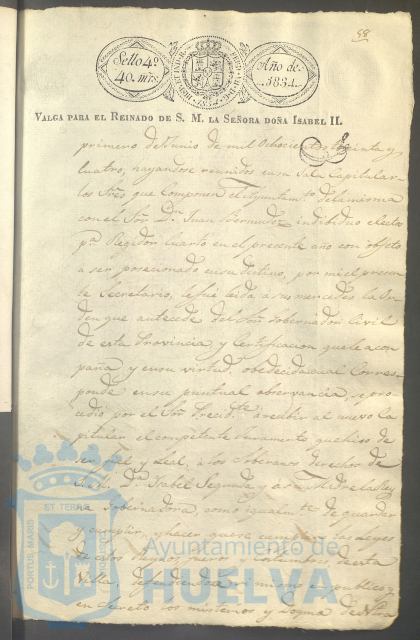 58
Sello 4º
40. mrs.
Año de
1834.
VALGA PARA EL REINADO DE S. M. LA SEÑORA DOÑA ISABEL II.
primero de Junio de mil Ochocientos treinta y
cuatro, hayandose reunidos en su Sala Capitular
los Sres que Componen el Ayuntamto de la misma
con el Sor Dn Juan Bermudez indibiduo electo
pa Regidor Cuarto en el presente año con objeto
a ser posecionado en su destino, por mi el presen
te Secretario, le fue leida a sus mercedes la Or
den que antecede del Sor Gobernador Civil
de esta Provincia, y Certificacion que le acom
paña, y en su virtud, obedecida cual Corres
ponde en su puntual observancia, se pro
cedió por el Sor Precidte a recibir al nuevo Ca
pitular el competente Juramento que hiso de
ser fiel y Leal, a los Soberanos derechos de
S. M. Da Isabel Segunda y a su Madre la Rey
na Gobernadora, como igualmte de guardar
y cumplir, y hacer que se cumplan las Leyes
de los Reynos, fueros y costumbres de esta
Villa, defender
publico y
en Secreto los misterios y Dogma de Nra
PORTUS MARIS
ET TERRAE
Ayuntamiento de
HUELVA